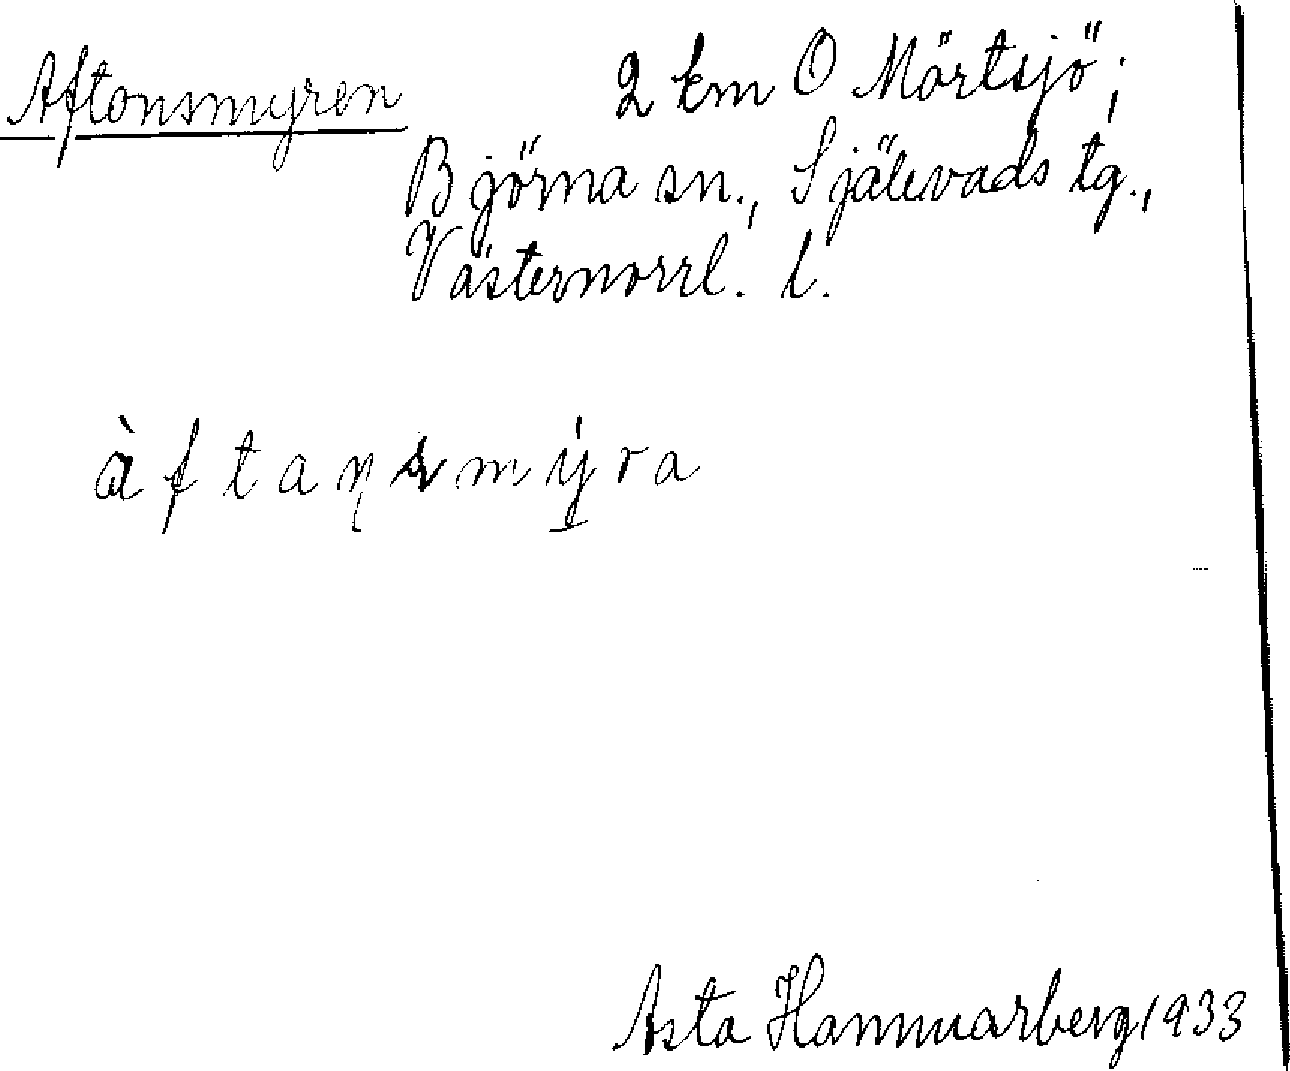 Aftonsmyren
2 km O Mörtsjö;
Björna sn., Själevads tg.,
Västernorrl. l.
àftansmy̱ra
Asta Hammarberg 1933